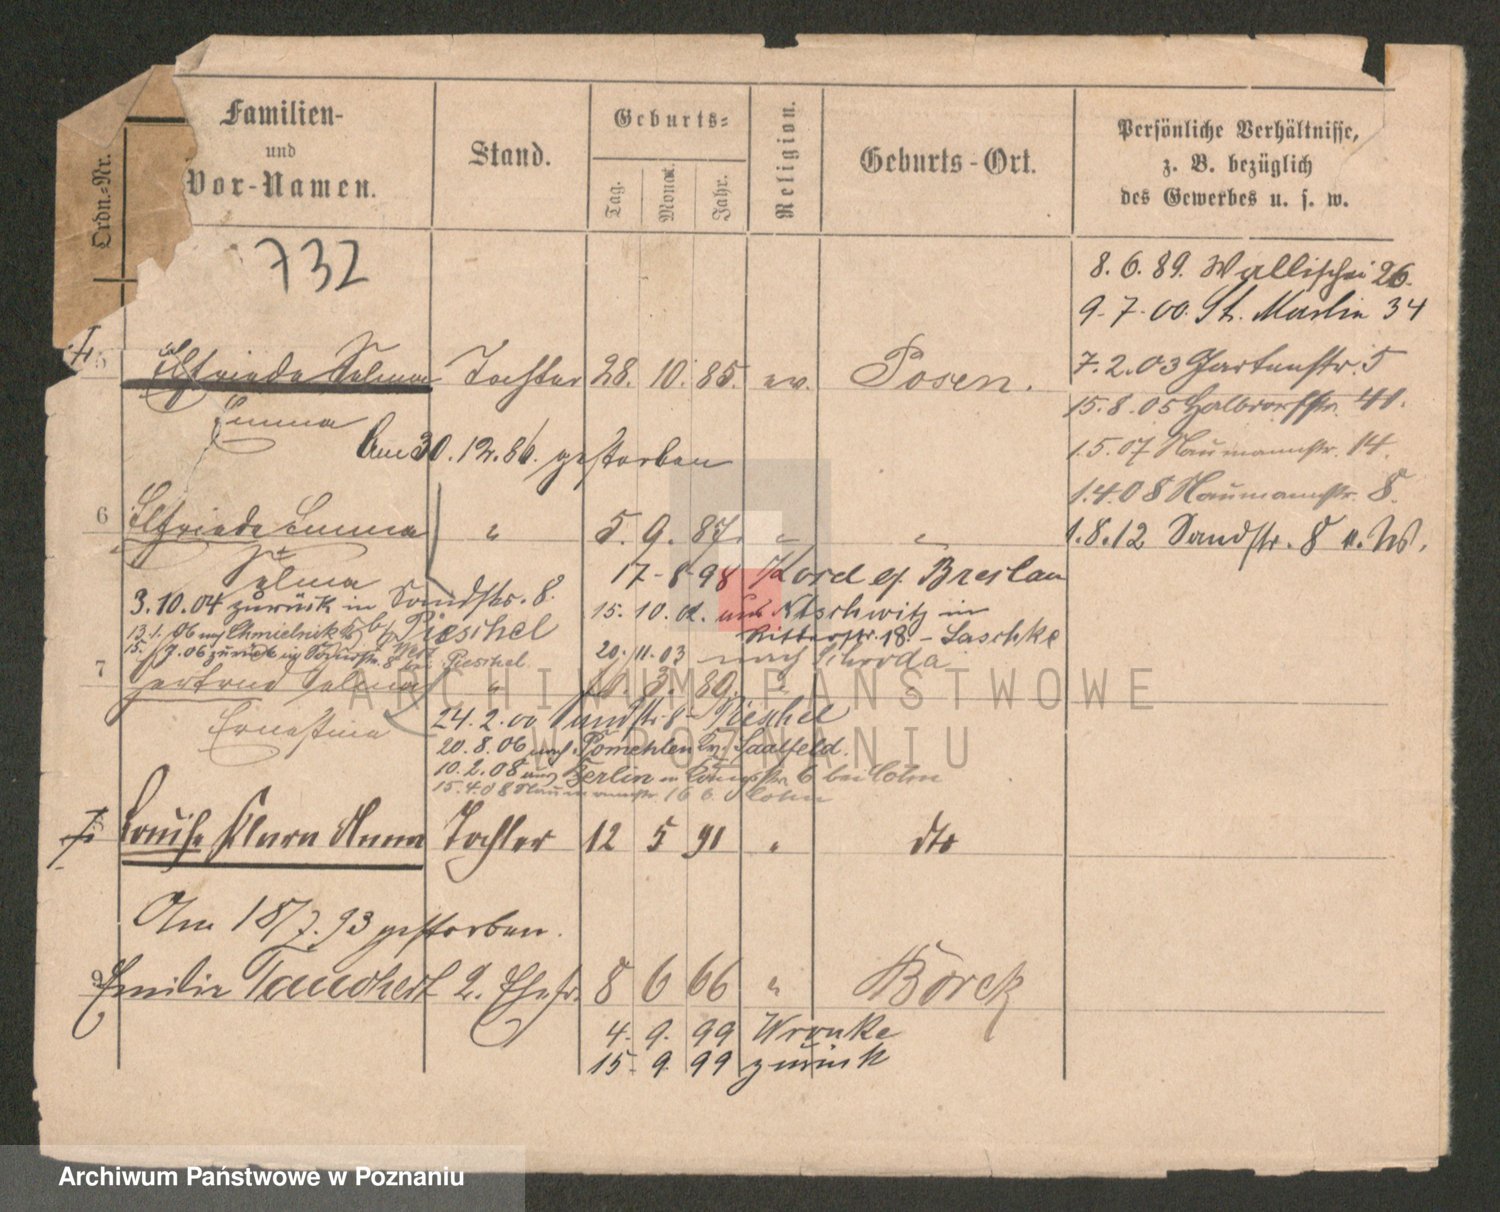 Ordn.-Nr.
Familien-
und
Vor-Namen.
Stand.
Geburts-
Tag.
Monat.
Jahr.
Religion.
Geburts-Ort.
Persönliche Verhältnisse,
z. B. bezüglich
des Gewerbes u. s. w.
732
8. 6. 89. Wallischei 26.
9. 7. 00. St. Martin 34
7. 2. 03 Gartenstr. 5
15. 8. 05 Halbdorfstr. 41.
1. 5. 07 Naumannstr. 14.
1. 4. 08 Naumannstr. 8.
1. 8. 12 Sandstr. 8 u. W.
5 Elfriede Selma Tochter 28. 10. 85. ev. Posen.
Emma
Am 30. 12. 86. gestorben
6 Elfriede Emma " 5. 9. 87. " "
Selma
17-8-98 Breslau
3. 10. 04 zurück in Sandstr. 8.
15. 10. 02. in
13. 1. 06 Pieschel
Ritterstr. 18. - Laschke
15. 7. 06 zurück Sandstr. 8 bei Pieschel
20. 11. 03 nach Schroda
7 Gertrud Selma " 3. 89. " "
Ernestine
24. 2. 00 Sandstr. 8 - Pieschel
20. 8. 06 nach Pomehlen Kr. Saalfeld.
10. 2. 08 nach Berlin 6 bei Cohn
15. 4. 08 Naumannstr. 16 b. Cohn
8 Louise Klara Anna Tochter 12 5 91 " dto
Am 18/7. 93 gestorben.
9 Emilie 2. Ehefr. 8 6 66 " Borek
4. 9. 99 Wronke
15. 9. 99 zurück
ARCHIWUM PAŃSTWOWE
W POZNANIU
Archiwum Państwowe w Poznaniu